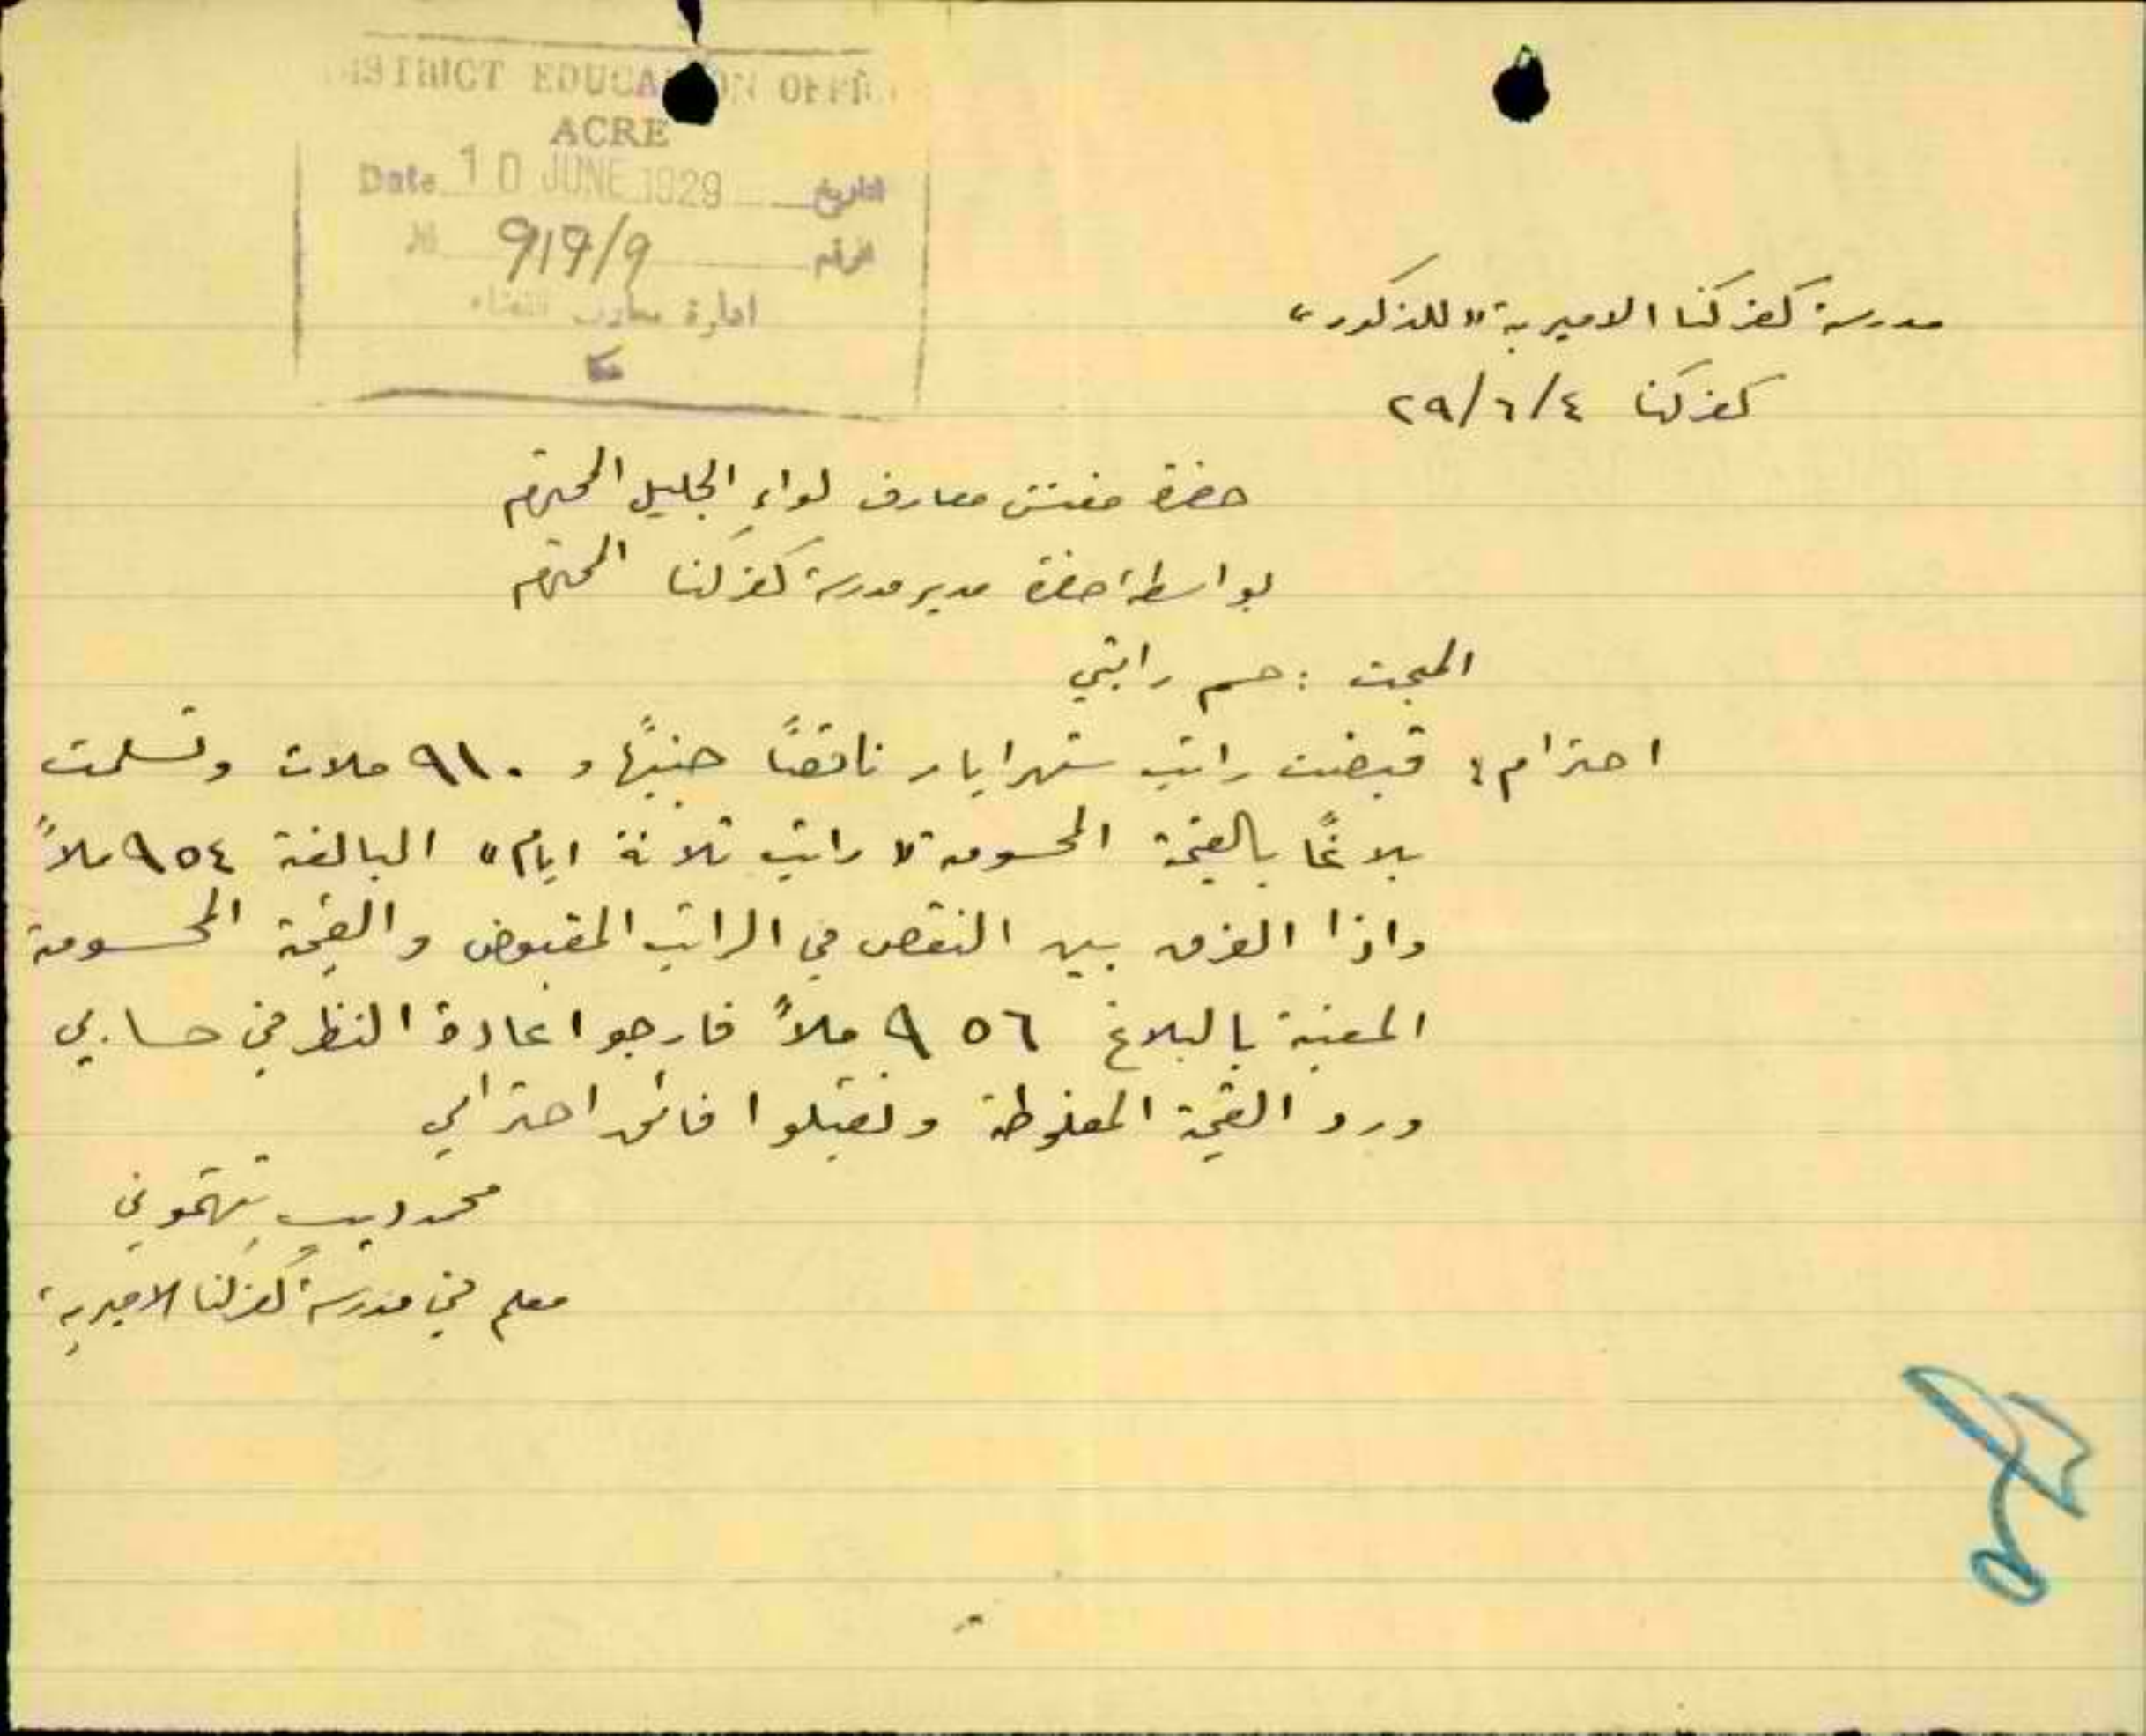 DISTRICT EDUCATION OFFICE
ACRE
Date 10 JUNE 1929 التاريخ
№ 919/9 الرقم
ادارة معارف القضاء
عكا
مدرسة كفركنا الاميرية "للذكور"
كفركنا ٤/٦/٢٩
حضرة مفتش معارف لواء الجليل المحترم
بواسطة حضرة مدير مدرسة كفركنا المحترم
المبحث : حسم راتبي
احتراماً قبضت راتب شهر ايار ناقصاً جنيهاً و ٩١٠ ملات وتسلمت
بلاغاً بالقيمة المحسومة "راتب ثلاثة ايام" البالغة ٩٥٤ ملاً
واذا الفرق بين النقص في الراتب المقبوض والقيمة المحسومة
المعينة بالبلاغ ٩٥٦ ملاً فارجوا اعادة النظر في حسابي
ورد القيمة المغلوطة وتفضلوا فائق احترامي
محمد ديب
معلم في مدرسة كفركنا الاميرية